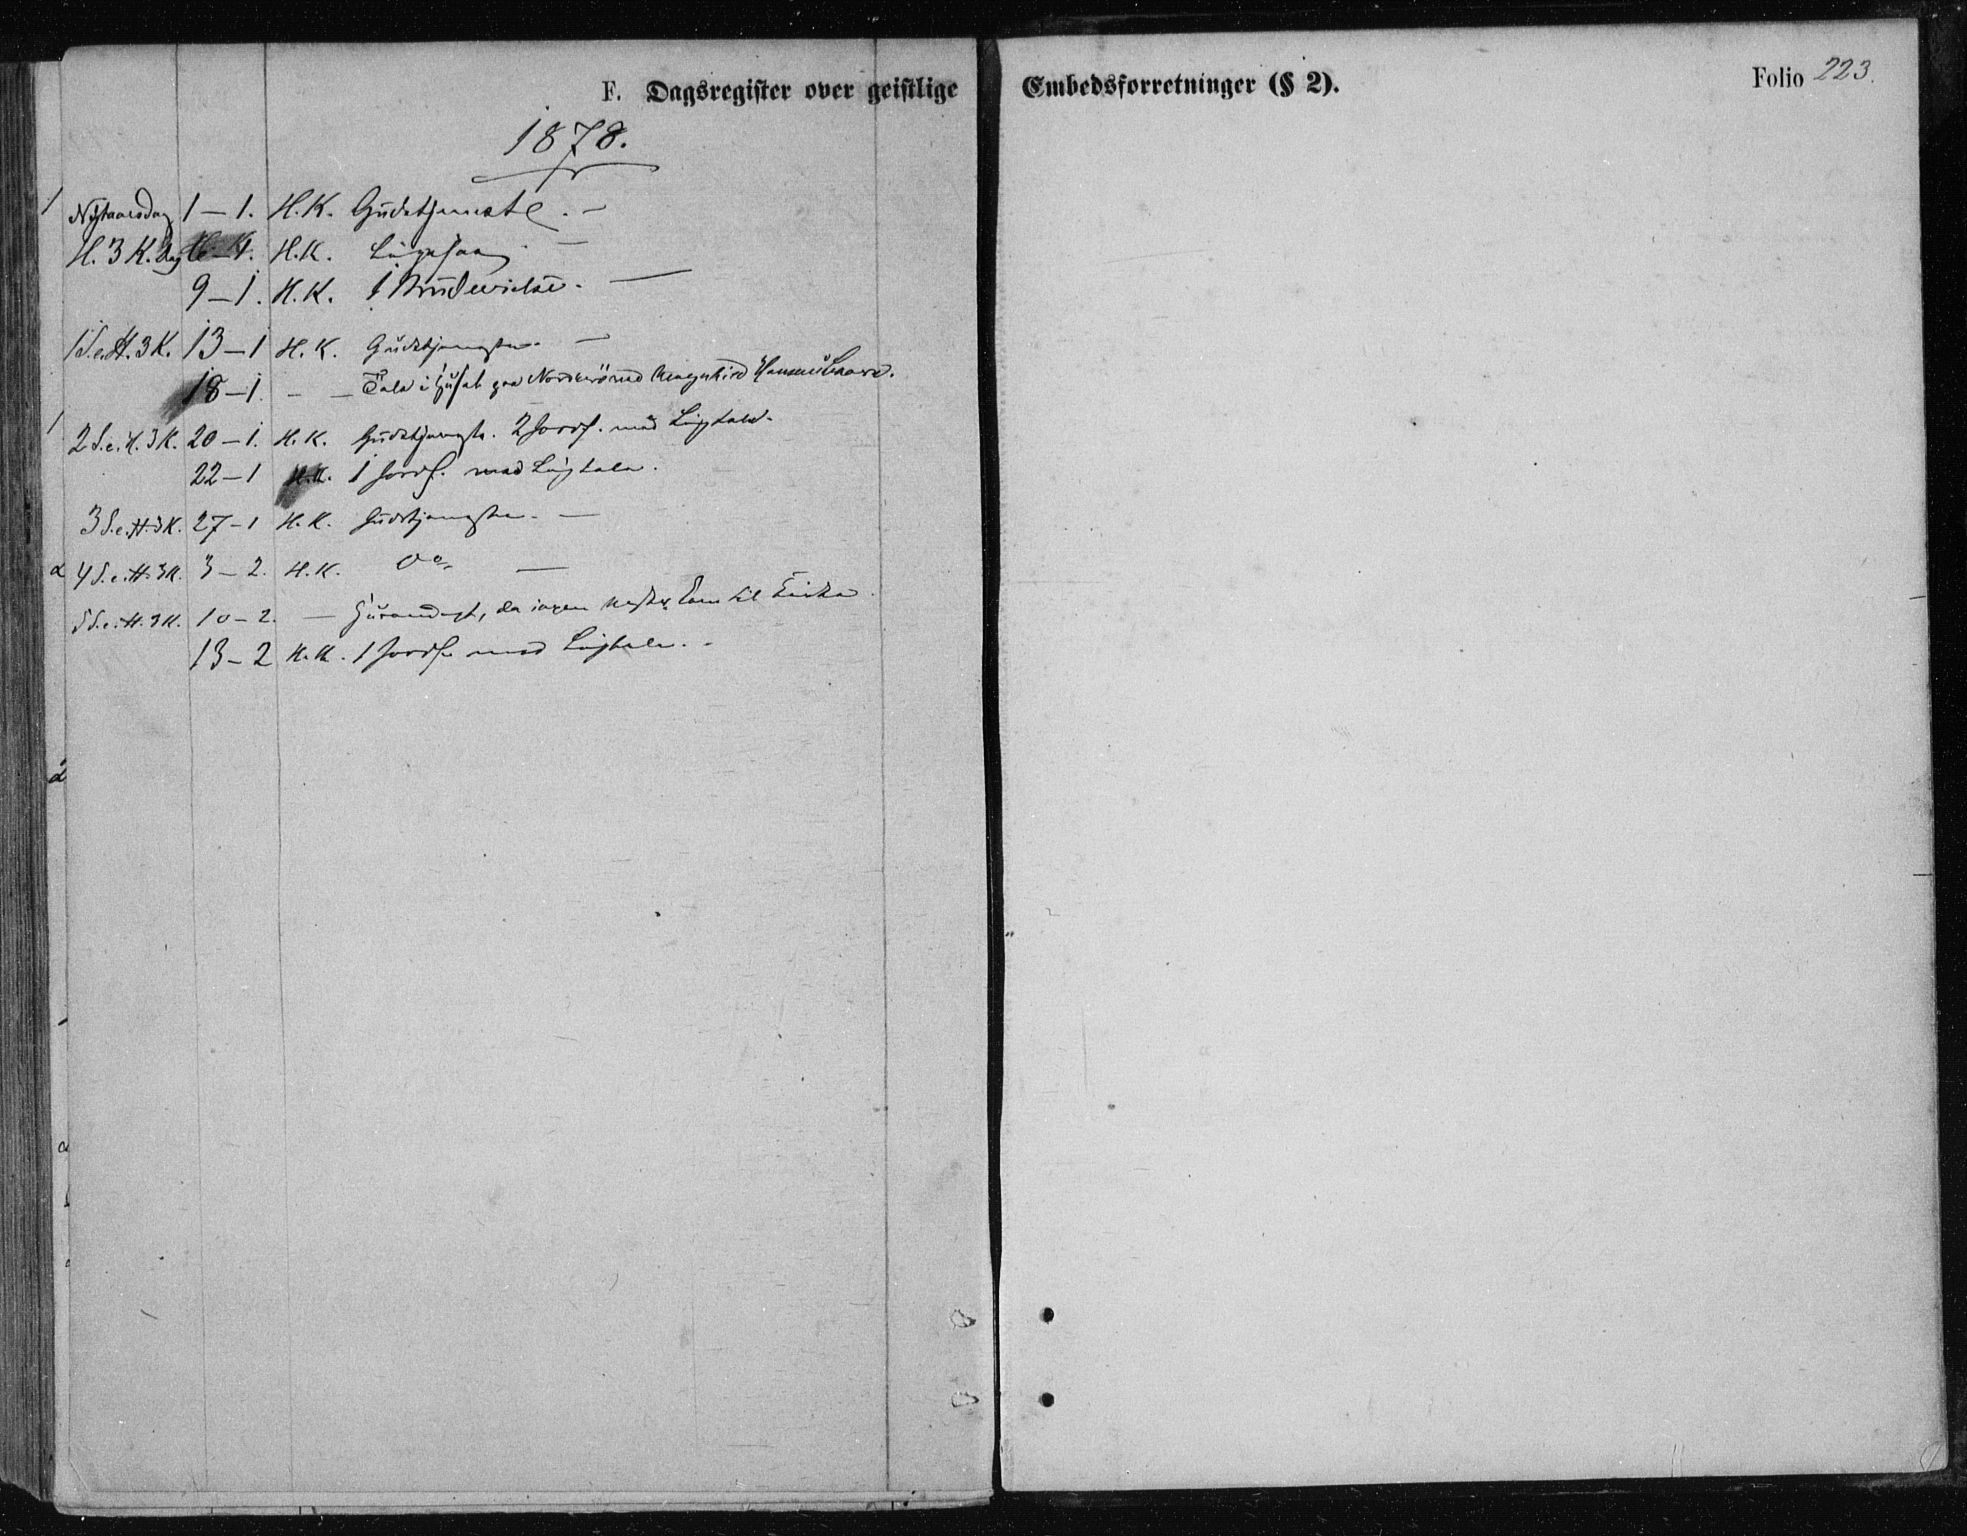 F. Dagsregister over geistlige Embedsforretninger (§ 2).
Folio 223.
1878.
Nytaarsdag 1 – 1. H. K. Gudstjeneste. –
H. 3 K. dag H. K. –
9 – 1. H. K. 1 Brudevielse. –
1 S. e. H. 3 K. 13 – 1 H. K. Gudstjeneste. –
18 – 1. – – Tale i Huset paa
2 S. e. H. 3 K. 20 – 1. H. K. Gudstjeneste. 2 Jordf. med Ligtale.
22 – 1 H. K. 1 Jordf. med Ligtale.
3 S. e. H. 3 K. 27 – 1 H. K. Gudstjeneste. –
4 S. e. H. 3 K. 3 – 2. H. K. Do –
5 S. e. H. 3 K. 10 – 2. – Husandagt, da ingen kom til Kirke.
13 – 2 H. K. 1 Jordf. med Ligtale. –